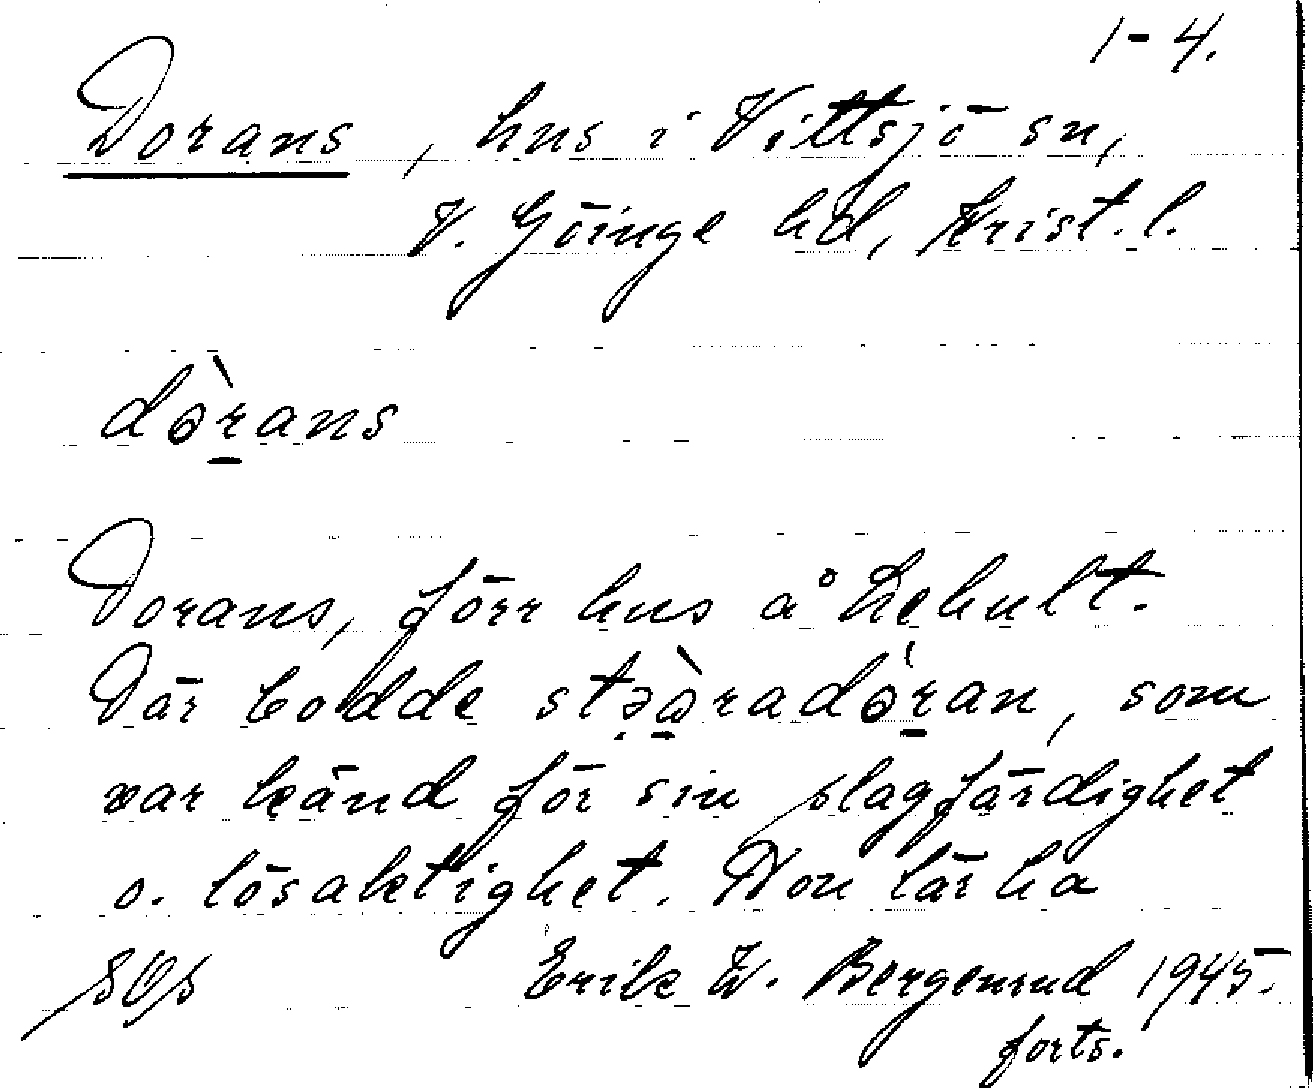 1-4.
Dorans, hus i Vittsjö sn,
V. Göinge hd, Krist. l.
dὸrans
Dorans, förr hus å Lehult.
Där bodde som
var känd för sin slagfärdighet
o. lösaktighet. Hon lär ha
Erik W. Bergenrud 1945.
forts.